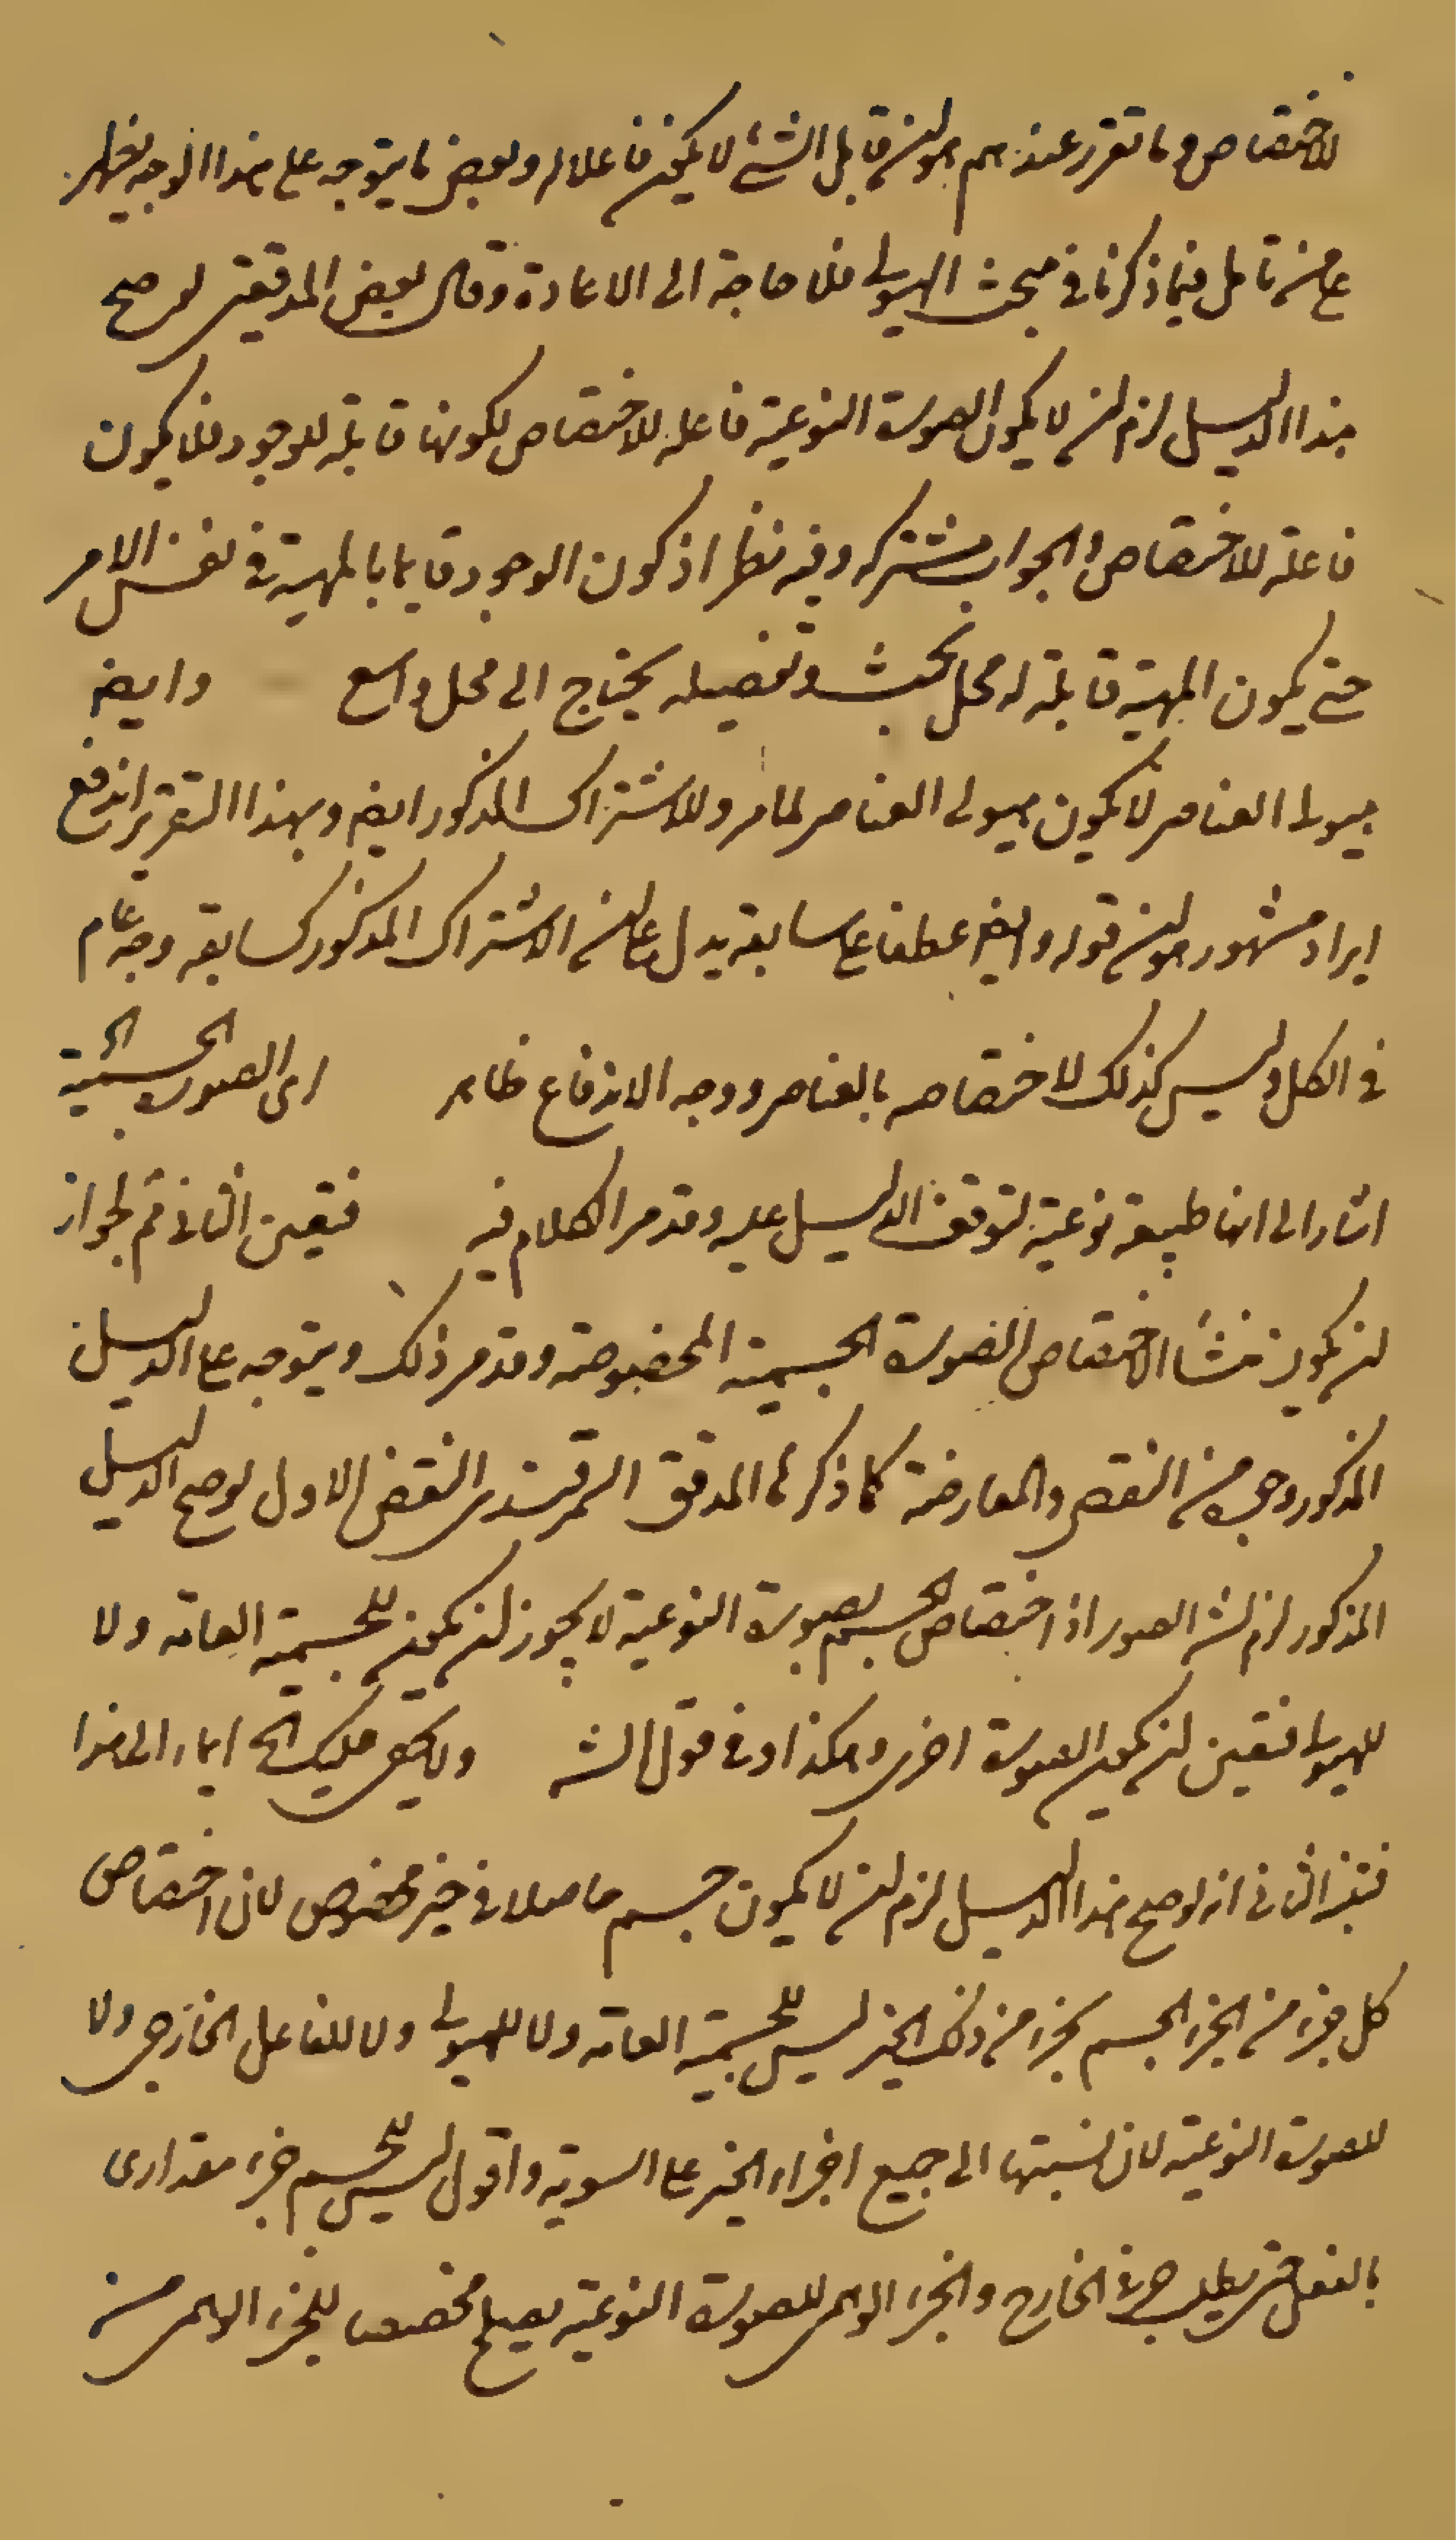 للاختصاص وما تقرر عندهم هو ان قابل الشئ لا يكون فاعلا له وبعض ما يتوجه على هذا الوجه يظهر
على من تامل فيما ذكرنا في مبحث الهيولى فلا حاجة الى الاعادة وقال بعض المدققين لو صح
هذا الدليل لزم ان لا يكون الصورة النوعية فاعله للاختصاص لكونها قابلة للوجود فلا يكون
فاعلة للاختصاص والجواب مشترك وفيه نظر اذ كون الوجود قايما بالمهية في نفس الامر
حتى يكون المهية قابلة له محل بحث وتفصيله يحتاج الى محل واسع وايضا
هيولى العناصر لا يكون هيولى العناصر لما مر وللاشتراك المذكور ايضا وبهذا التقرير اندفع
ايراد مشهور هو ان قوله وايضا عطفا على سابقه يدل على ان الاشتراك المذكور كسابقه وجه عام
في الكل وليس كذلك لاختصاصه بالعناصر ووجه الاندفاع ظاهر اى الصورة الجسمية الخ
اشار الى انها طبيعة نوعية لتوقف الدليل عليه وقد مر الكلام فيه فتعين الثانى قم لجواز
ان يكون منشأ الاختصاص الصورة الجسمية المخصوصة وقد مر ذلك ويتوجه على الدليل
المذكور وجوه من النقض والمعارضة كما ذكرها المدقق السمرقندى النقض الاول لو صح الدليل
المذكور لزم تس الصور اذ اختصاص الجسم بصورة النوعية لا يجوز ان يكون للجسمية العامة ولا
للهيولى فتعين ان يكون لصورة اخرى وهكذا وفى قول الش ولا يخفى عليك الخ ايماء الى هذا
فتنبه الثانى انه لو صح هذا الدليل لزم ان لا يكون جسم حاصلا في حيز مخصوص لان اختصاص
كل جزء من اجزاء الجسم بجزء من ذلك الحيز ليس للجسمية العامة ولا للهيولى ولا للفاعل الخارجى ولا
للصورة النوعية لان نسبتها الى جميع اجزاء الحيز على السوية واقول ليس للجسم جزء مقدارى
بالفعل حتى يطلب جزء في الخارج والجزء الوهمى للصورة النوعية يصلح مخصصا للجزء الوهمى من